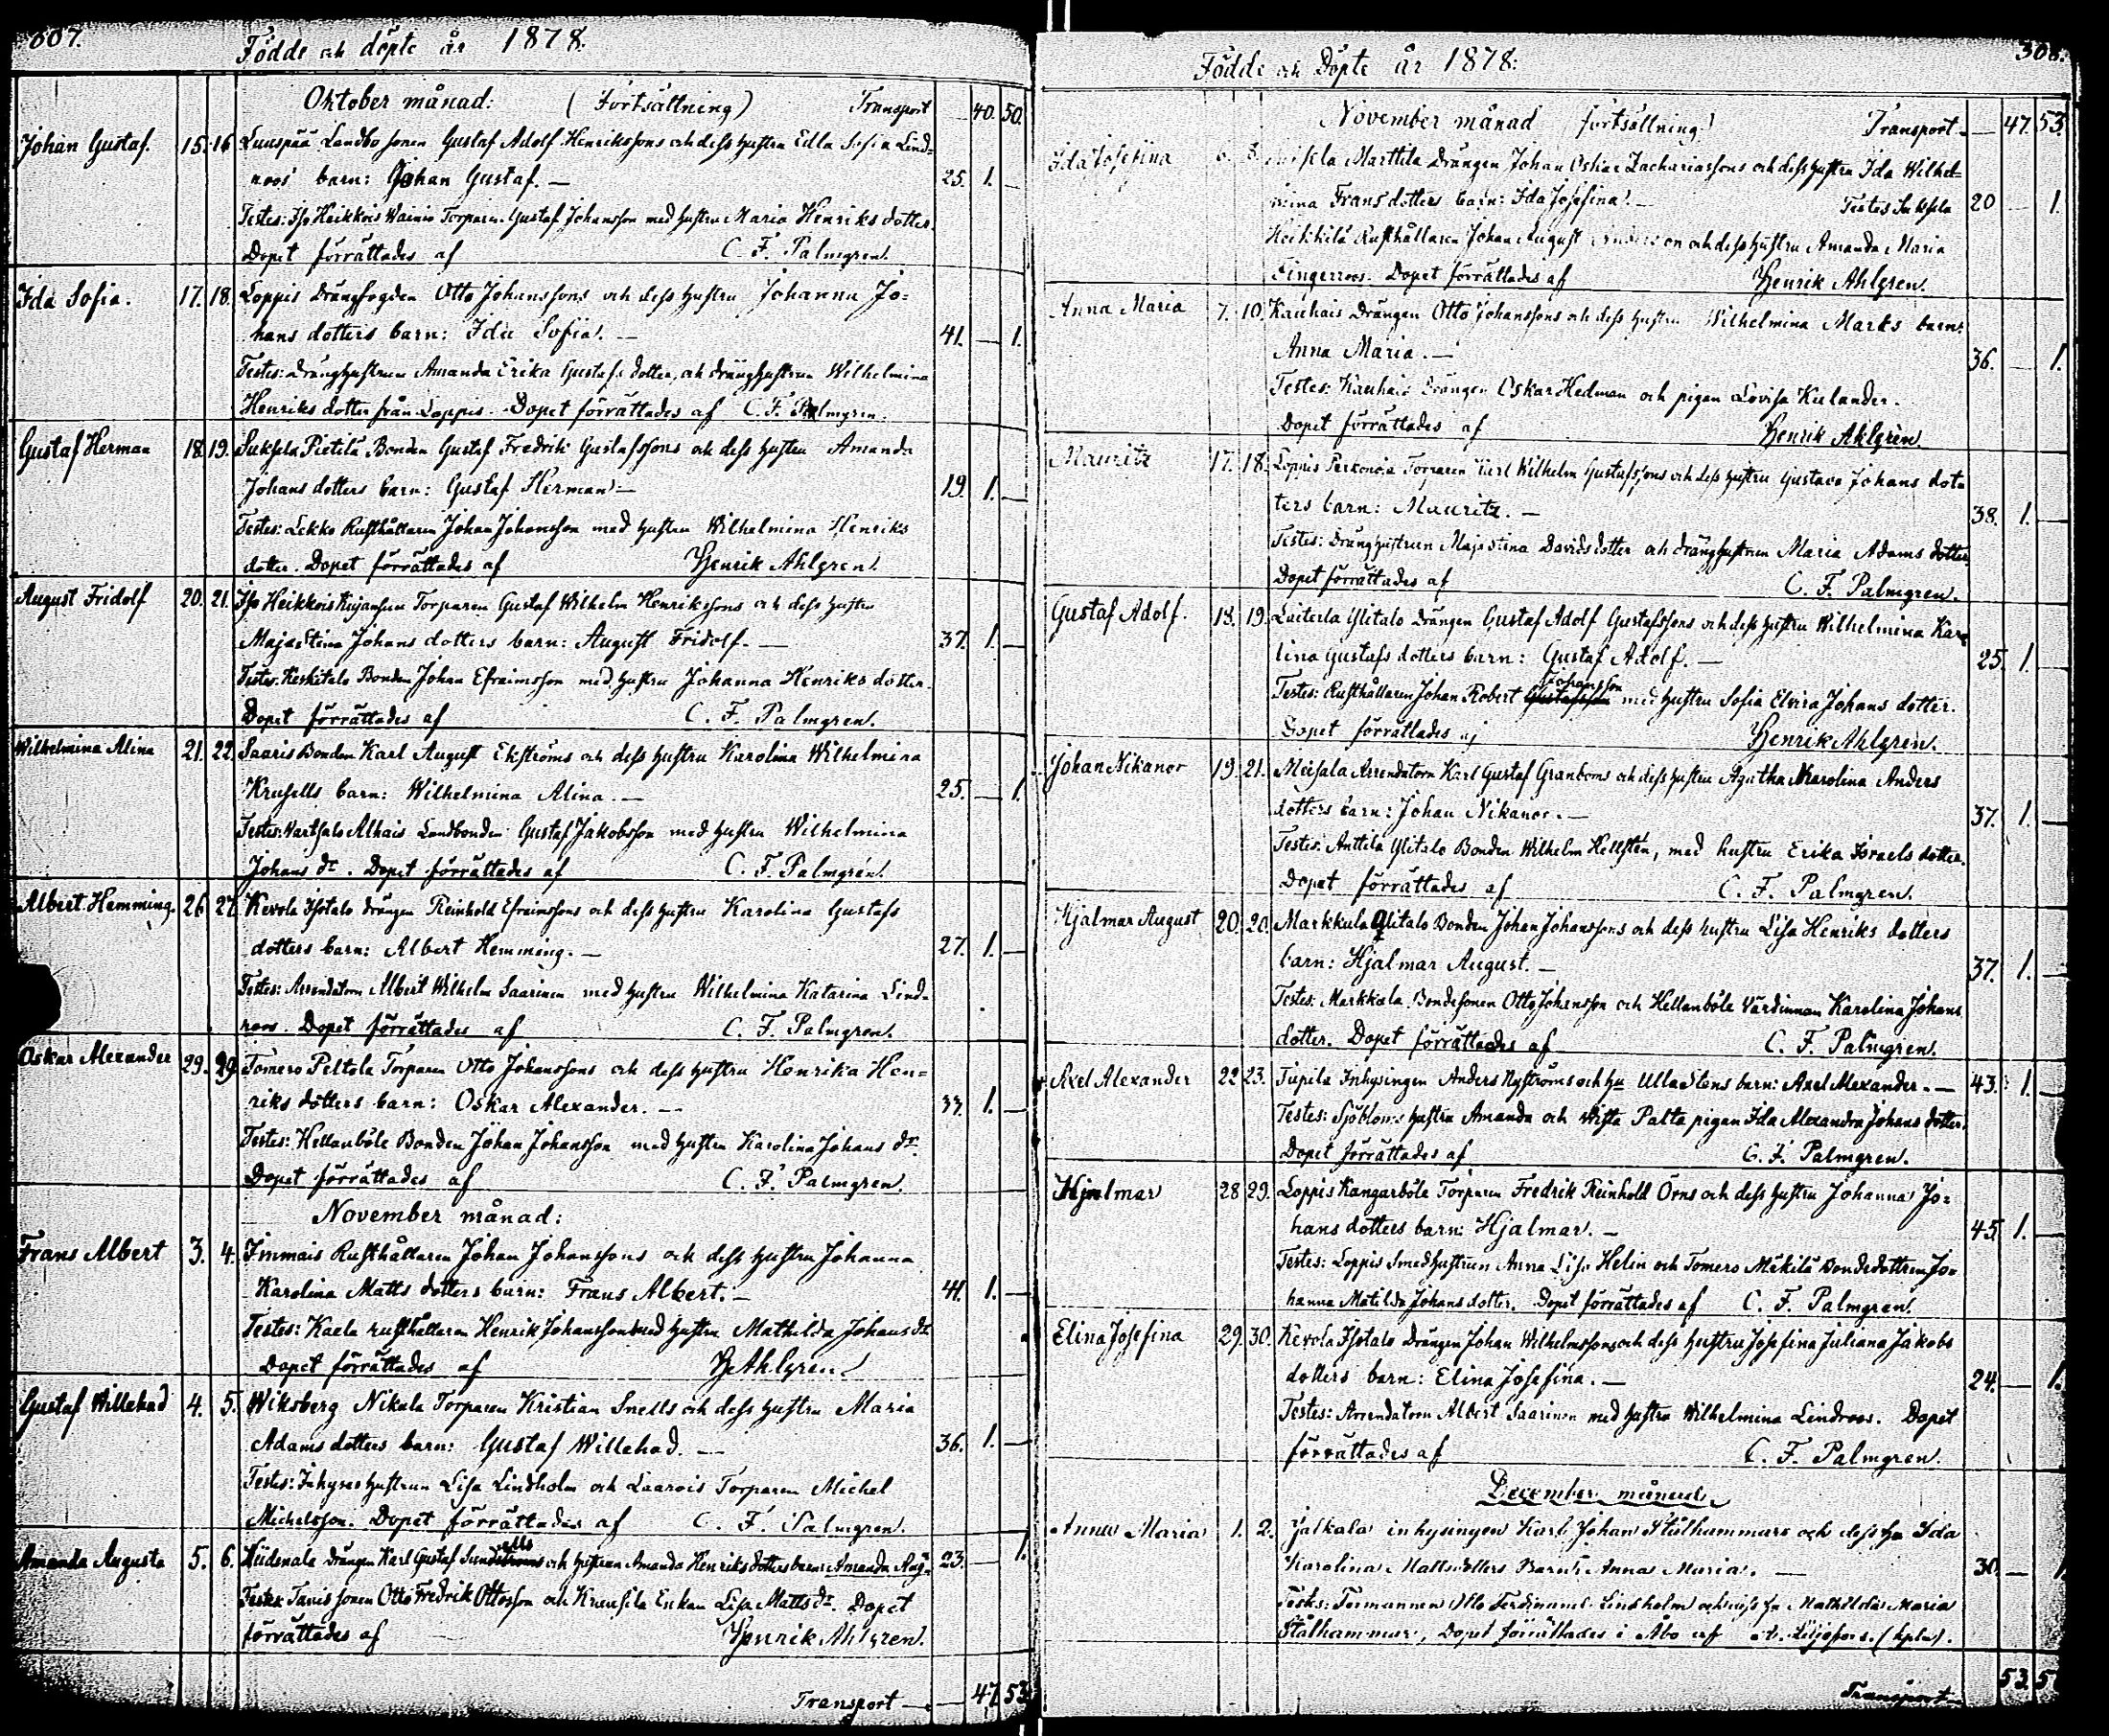 307.
Födde och döpte år 1878.
Oktober månad: (Fortsättning) Transport 40. 50.
Johan Gustaf. 15. 16. Luuspää Landbo sonen Gustaf Adolf Henrikssons och dess hustru Edla Sofia Lind-
roos' barn: Johan Gustaf. — 25. 1. —
Testes: Iso Heikkois Wainio Torparen Gustaf Johansson med hustru Maria Henriks dotter.
Dopet förrättades af C. F. Palmgren.
Ida Sofia. 17. 18. Loppis Drängfogden Otto Johanssons och dess hustru Johanna Jo-
hans dotters barn: Ida Sofia. — 41. — 1.
Testes: Dränghustrun Amanda Erika Gustafs dotter, och dränghustrun Wilhelmina
Henriks dotter från Loppis. Dopet förrättades af C. F. Palmgren.
Gustaf Herman 18. 19. Suksela Pietilä Bonden Gustaf Fredrik Gustafssons och dess hustru Amanda
Johans dotters barn: Gustaf Herman — 19. 1. —
Testes: Lekko Rusthållaren Johan Johansson med hustru Wilhelmina Henriks
dotter. Dopet förrättades af Henrik Ahlgren.
August Fridolf 20. 21. Iso Heikkois Kujansuu Torparen Gustaf Wilhelm Henrikssons och dess hustru
Maja Stina Johans dotters barn: August Fridolf. — 37. 1. —
Testes: Keskitalo Bonden Johan Efraimsson med hustru Johanna Henriks dotter.
Dopet förrättades af C. F. Palmgren.
Wilhelmina Alina 21. 22. Saaris Bonden Karl August Ekströms och dess hustru Karolina Wilhelmina
Krusells barn: Wilhelmina Alina. — 25. — 1.
Testes: Wartsalo Alhais Landbonden Gustaf Jakobsson med hustru Wilhelmina
Johans dr. Dopet förrättades af C. F. Palmgren.
Albert Hemming. 26. 27. Kevola Isotalo drängen Reinhold Efraimssons och dess hustru Karolina Gustafs
dotters barn: Albert Hemming. — 27. 1. —
Testes: Arrendatorn Albert Wilhelm Saarinen med hustru Wilhelmina Katarina Lind-
roos. Dopet förrättades af C. F. Palmgren.
Oskar Alexander 29. 29. Tomero Peltola Torparen Otto Johanssons och dess hustru Henrika Hen-
riks dotters barn: Oskar Alexander. — 33. 1. —
Testes: Hellanböle Bonden Johan Johansson med hustru Karolina Johans dr.
Dopet förrättades af C. F. Palmgren.
November månad:
Frans Albert 3. 4. Immais Rusthållaren Johan Johanssons och dess hustru Johanna
Karolina Matts dotters barn: Frans Albert. — 41. 1. —
Testes: Kaela rusthållaren Henrik Johansson med hustru Mathilda Johans dr.
Dopet förrättades af H. Ahlgren.
Gustaf Willehad 4. 5. Wiksberg Nikula Torparen Kristian Snells och dess hustru Maria
Adams dotters barn: Gustaf Willehad. — 36. 1. —
Testes: Inhyses hustrun Lisa Lindholm och Laarois Torparen Michel
Michelsson. Dopet förrättades af C. F. Palmgren.
Amanda Augusta 5. 6. drängen Karl Gustaf och hustrun Amanda Henriks dotters barn: Amanda Aug. 23. — 1.
Testes: Tanis sonen Otto Fredrik Ottosson och Enkan Lisa Matts dr. Dopet
förrättades af Henrik Ahlgren.
Transport — — 47. 53.
308.
Födde och Döpte år 1878:
November månad (fortsättning) Transport — — 47. 53.
Ida Josefina Marttila Drängen Johan Oskar Zachariassons och dess hustru Ida Wilhel-
mina Frans dotters barn: Ida Josefina. — Testes Suksela 20 — 1.
Heikkilä Rusthållaren Johan August Andersson och dess hustru Amanda Maria
Fingerroos. Dopet förrättades af Henrik Ahlgren.
Anna Maria 7. 10. Kauhais Drängen Otto Johanssons och dess hustru Wilhelmina Marks barn:
Anna Maria. — 36. — 1.
Testes: Kauhais Drängen Oskar Hedman och pigan Lovisa Kulander.
Dopet förrättades af Henrik Ahlgren
Mauritz 17. 18. Loppis Perkonoja Torparen Karl Wilhelm Gustafssons och dess hustru Gustava Johans dot-
ters barn: Mauritz. — 38. 1. —
Testes: Dränghustrun Maja Stina Davids dotter och dränghustrun Maria Adams dotter.
Dopet förrättades af C. F. Palmgren.
Gustaf Adolf. 18. 19. Laiterla Ylitalo Drängen Gustaf Adolf Gustafssons och dess hustru Wilhelmina Karo-
lina Gustafs dotters barn: Gustaf Adolf. — 25. 1. —
Testes: Rusthållaren Johan Robert Johansson med hustru Sofia Elvira Johans dotter.
Dopet förrättades af Henrik Ahlgren.
Johan Nikanor 19. 21. Meisala Arrendatorn Karl Gustaf Granboms och dess hustru Agatha Karolina Anders
dotters barn: Johan Nikanor. — 37. 1. —
Testes: Anttila Ylitalo Bonden Wilhelm Hellstén, med hustru Erika Israels dotter.
Dopet förrättades af C. F. Palmgren.
Hjalmar August 20. 20. Markkula Ylitalo Bonden Johan Johanssons och dess hustru Lisa Henriks dotters
barn: Hjalmar August. — 37. 1. —
Testes: Markkula Bondesonen Otto Johansson och Hellanböle Värdinnan Karolina Johans
dotter. Dopet förrättades af C. F. Palmgren.
Axel Alexander 22 23. Tupila Inhysingen Anders Nyströms och hu Ulla Stens barn: Axel Alexander. — 43. 1. —
Testes: Sjöbloms hustru Amanda och Wista Palta pigan Ida Alexandra Johans dotter.
Dopet förrättades af C. F. Palmgren.
Hjalmar 28 29. Loppis Kangarböle Torparen Fredrik Reinhold Örns och dess hustru Johanna Jo-
hans dotters barn: Hjalmar. — 45. 1. —
Testes: Loppis Smedhustrun Anna Lisa Helin och Tomero Mäkilä Bondedottren Jo-
hanna Matilda Johans dotter. Dopet förrättades af C. F. Palmgren.
Elina Josefina 29. 30. Kevola Isotalo Drängen Johan Wilhelmssons och dess hustru Josefina Juliana Jakobs
dotters barn: Elina Josefina. — 24. — 1.
Testes: Arrendatorn Albert Saarinen med hustru Wilhelmina Lindroos. Dopet
förrättades af C. F. Palmgren.
December månad.
Anna Maria 1. 2. Jalkala inhysingen Karl Johan Stålhammars och dess hu Ida
Karolina Mattsdotters Barn: Anna Maria. — 30. — 1
Testes: Timmannen Otto Ferdinand Lindholm och dess hu Mathilda Maria
Stålhammar, Dopet förrättades i Åbo af Liljefors. (kpln).
Transport 53. 5